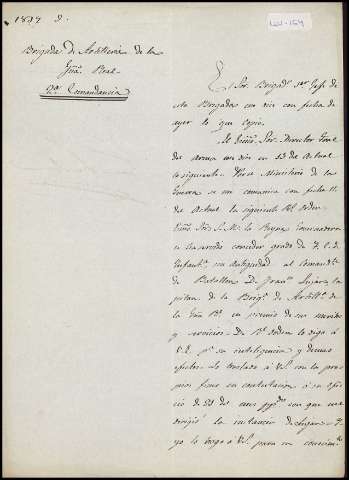 1837
Brigada de Artilleria de la
Gua. Real
2a. Comandancia
El Sor. Brigadr. 1er Jefe de
esta Brigada con fecha de
ayer lo que copio.
El Exmo. Sor. Director Gral
del arma me dice en 13 del Actual
lo siguiente. Por el Ministerio de la
Guerra se me comunica con fecha 11
del Actual la siguiente Rl. orden
Exmo. Sor. S. M. la Reyna Governadora
se ha servido conceder grado de T. C. de
Infanta. sin antiguedad al Comandte.
de Batallon D. Joaqn. Capitan
de la Briga. de Artilla. de
la Gua. Rl. en premio de sus meritos
y servicios. De Rl. orden lo digo a
V.E. pa. su inteligencia y demas
efectos. Lo traslado a V.S. con los propios
fines en contestacion a su oficio
de con que me
dirigió la instancia del
yo lo hago a V.S. para su